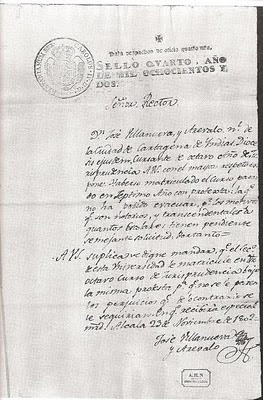 Para despachos de oficio quatro mrs.
SELLO QVARTO, AÑO
DE MIL OCHOCIENTOS Y
DOS.
Señor Rector
Dn. José Villanueva, y Arevalo, nl. de
la Ciudad de Cartagena de Indias, Dioce
sis ejusdem, Cursante de octavo año de Ju
risprudencia A.V.S. con el mayor respeto ex
pone: Haberse matriculado el curso pasa
do en Septimo Año con protexta, la qe.
no ha podido evacuar, pr. los motivos
qe. son notorios, y transcendentales a
quantos Escolares tienen pendiente
semejante solicitud. Por tanto
A V.S. suplica se digne mandar qe. el Sec.
de esta Universidad le matricule en
octavo Curso de Jurisprudencia bajo
la misma protexta pr. qe. no se le paren
los perjuicios qe. de contrario se
le seguirian. En qe. recibirá especial
mrd. Alcala 23 de Noviembre de 1802
José Villanueva
y Arevalo
A.H.N